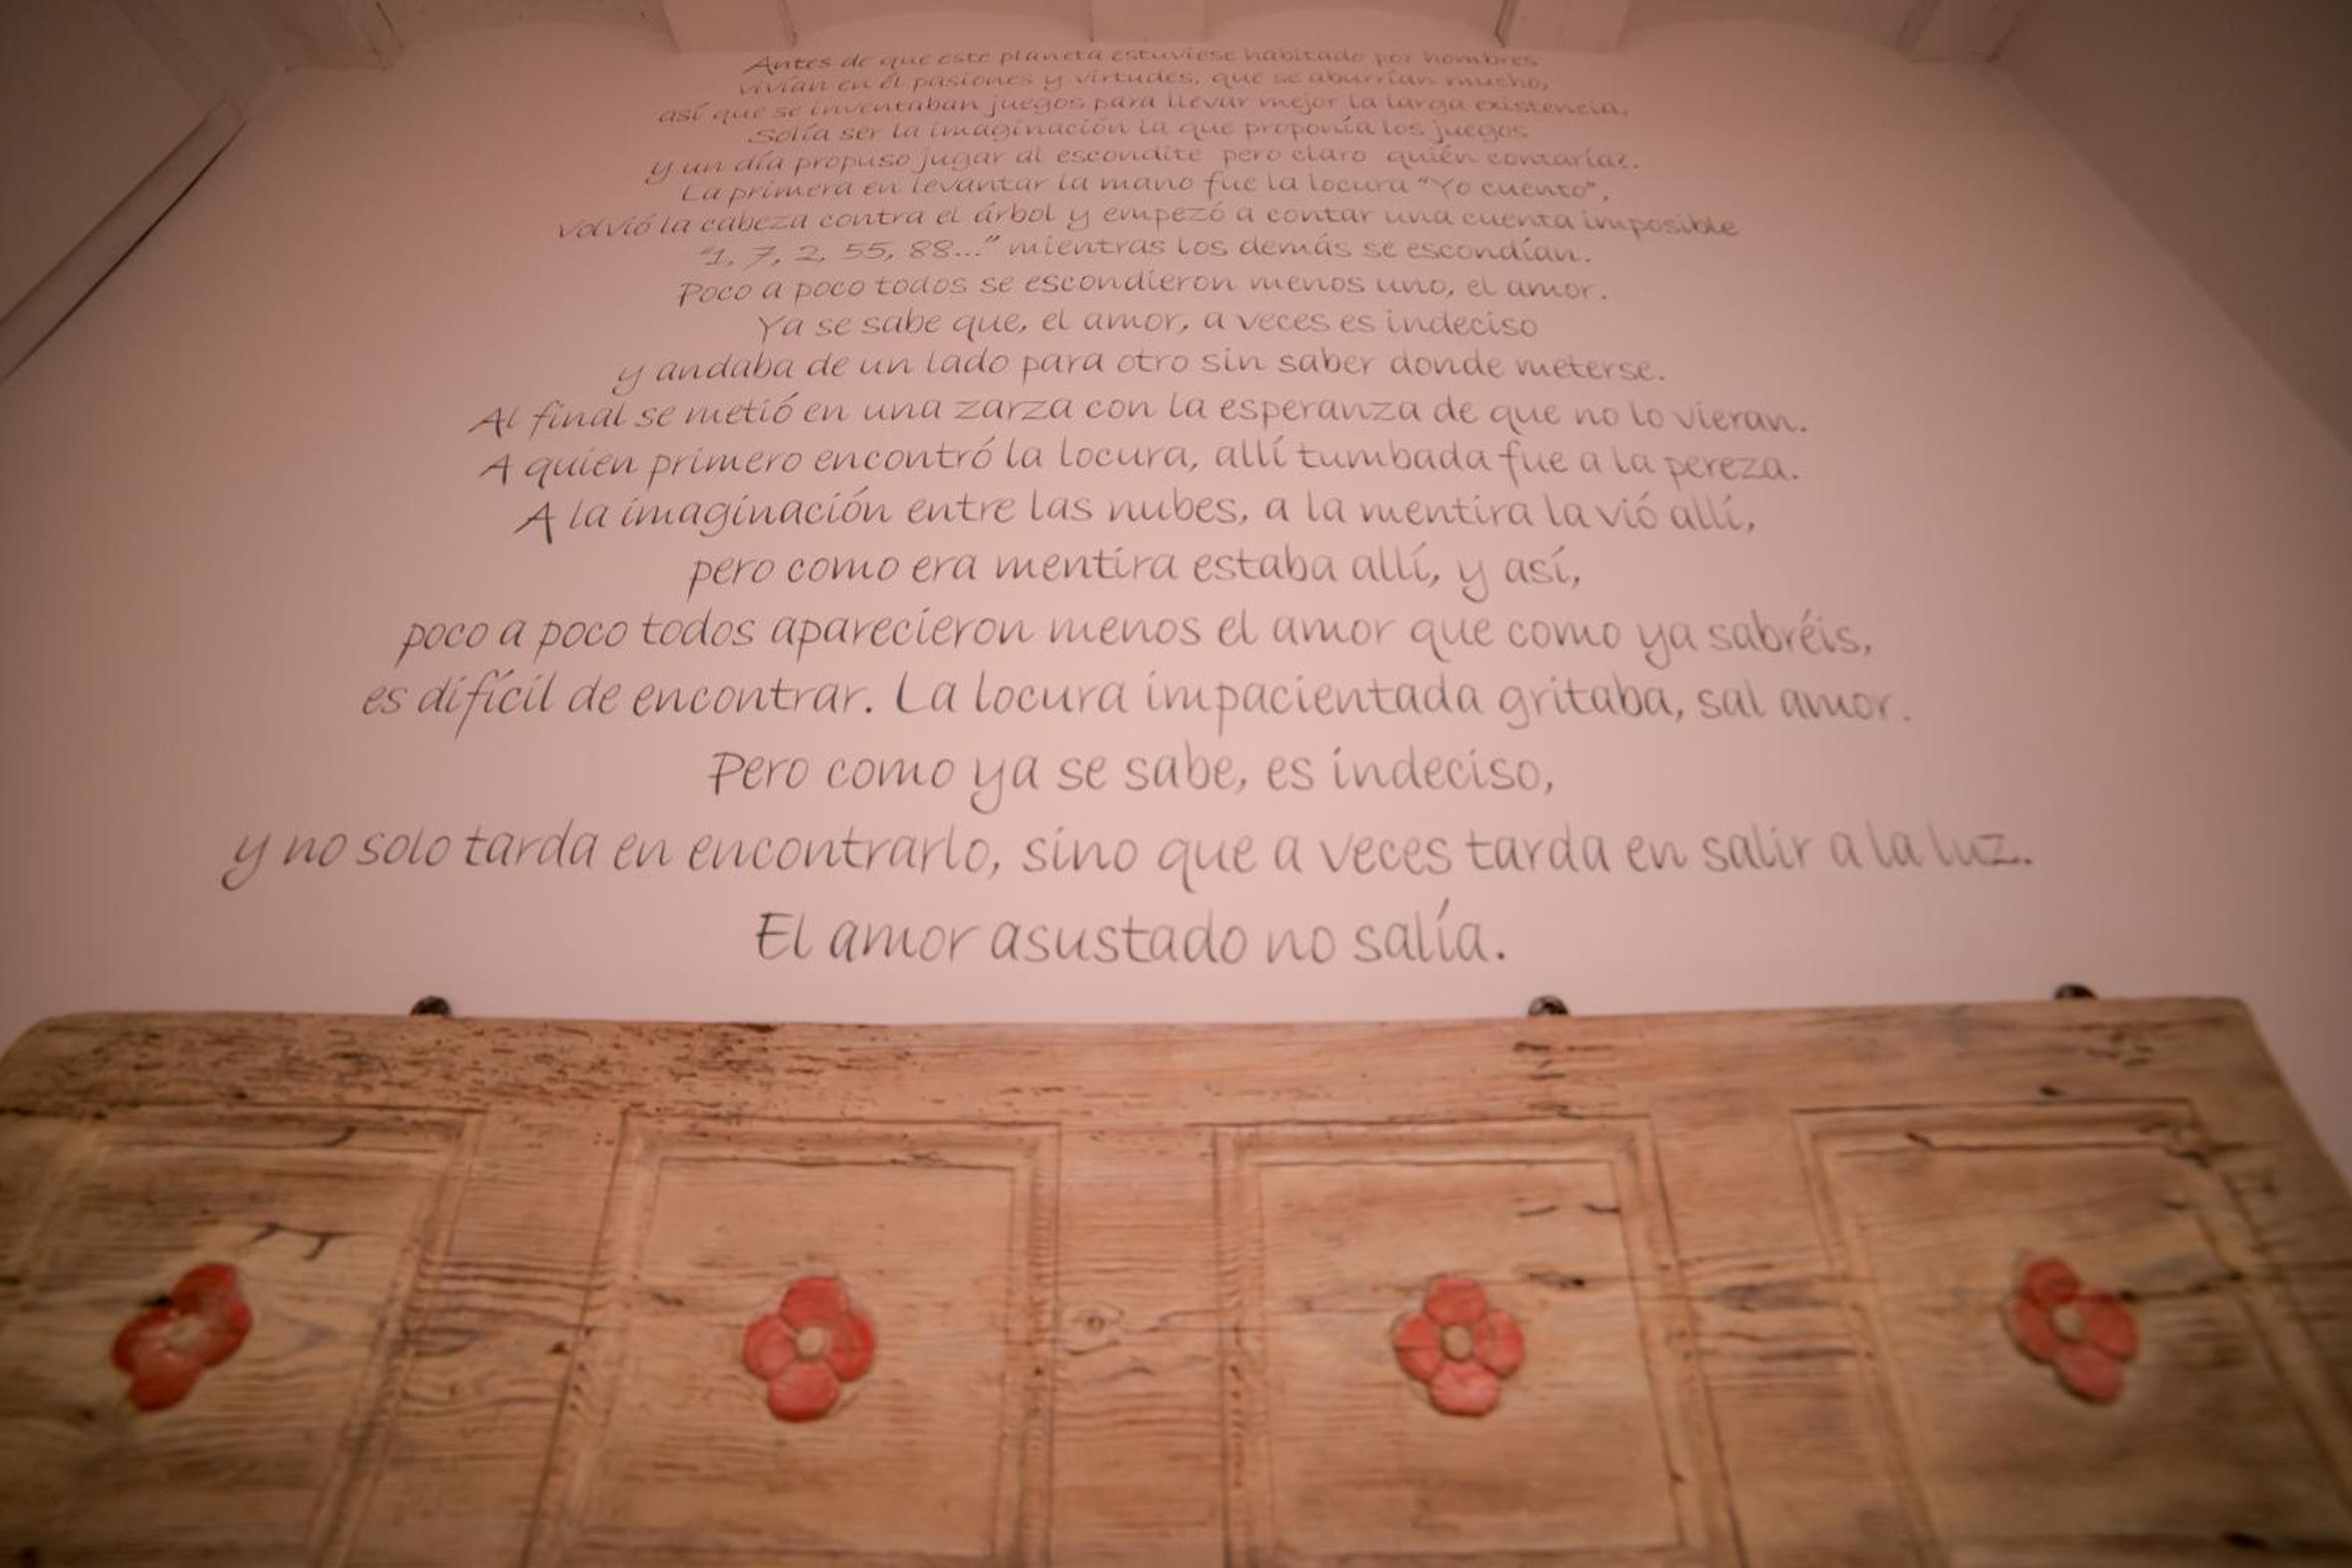 Antes de que este planeta estuviese habitado por hombres
vivían en él pasiones y virtudes, que se aburrían mucho,
así que se inventaban juegos para llevar mejor la larga existencia.
Solía ser la imaginación la que proponía los juegos
y un día propuso jugar al escondite pero claro quién contaría?.
La primera en levantar la mano fue la locura "Yo cuento".
Volvió la cabeza contra el árbol y empezó a contar una cuenta imposible
"1, 7, 2, 55, 88..." mientras los demás se escondían.
Poco a poco todos se escondieron menos uno, el amor.
Ya se sabe que, el amor, a veces es indeciso
y andaba de un lado para otro sin saber donde meterse.
Al final se metió en una zarza con la esperanza de que no lo vieran.
A quien primero encontró la locura, allí tumbada fue a la pereza.
A la imaginación entre las nubes, a la mentira la vió allí,
pero como era mentira estaba allí, y así,
poco a poco todos aparecieron menos el amor que como ya sabréis,
es difícil de encontrar. La locura impacientada gritaba, sal amor.
Pero como ya se sabe, es indeciso,
y no solo tarda en encontrarlo, sino que a veces tarda en salir a la luz.
El amor asustado no salía.